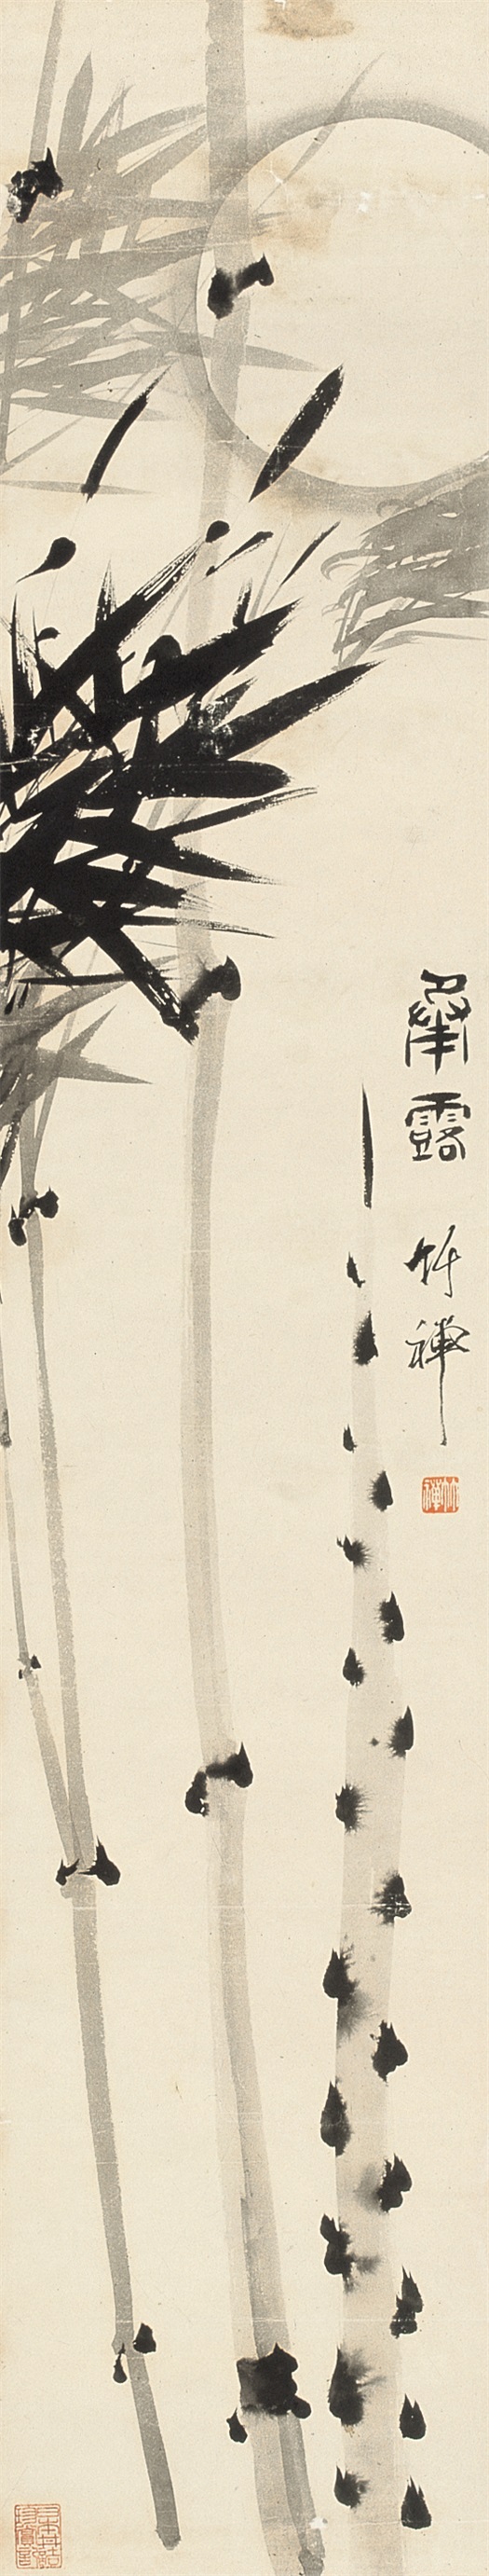 承露
竹禪
竹禪